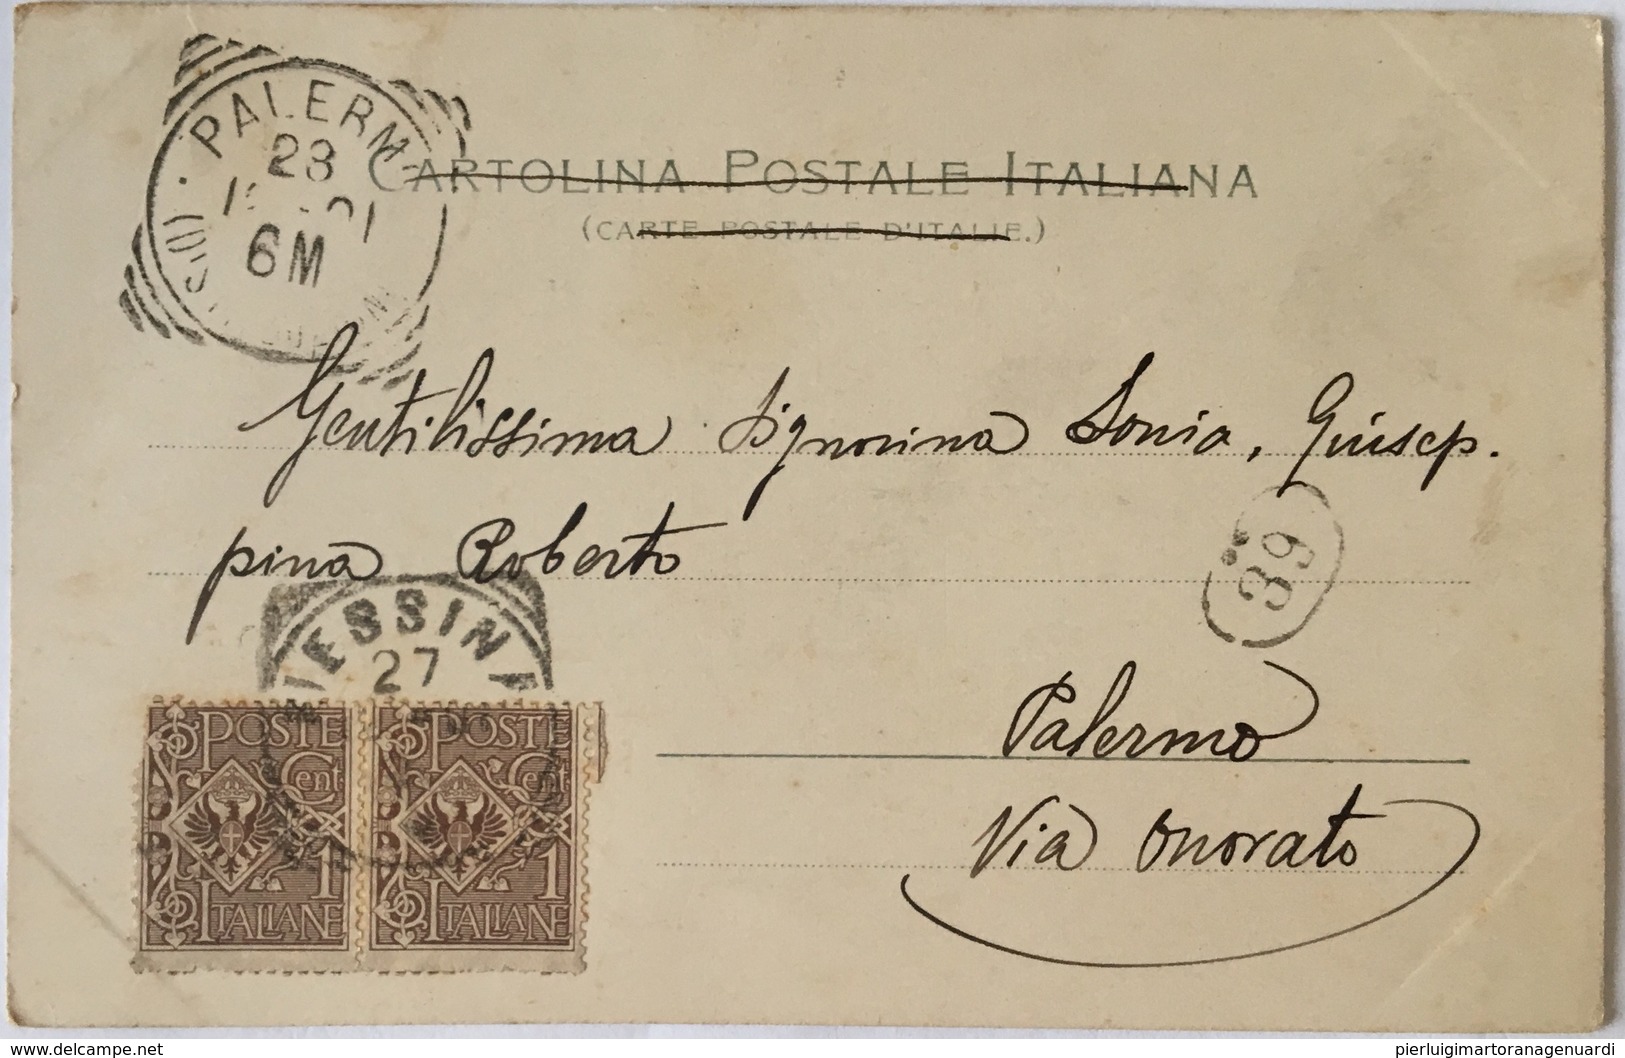 PALERM
28
01
6M
CARTOLINA POSTALE ITALIANA
(CARTE POSTALE D'ITALIE.)
Gentilissima Signorina Sonia, Giusep.
pina Roberto
39
MESSINA
27
Palermo
Via Onorato
POSTE POSTE
Cent. Cent.
1 1
ITALIANE ITALIANE
delcampe.net
pierluigimartoranagenuardi